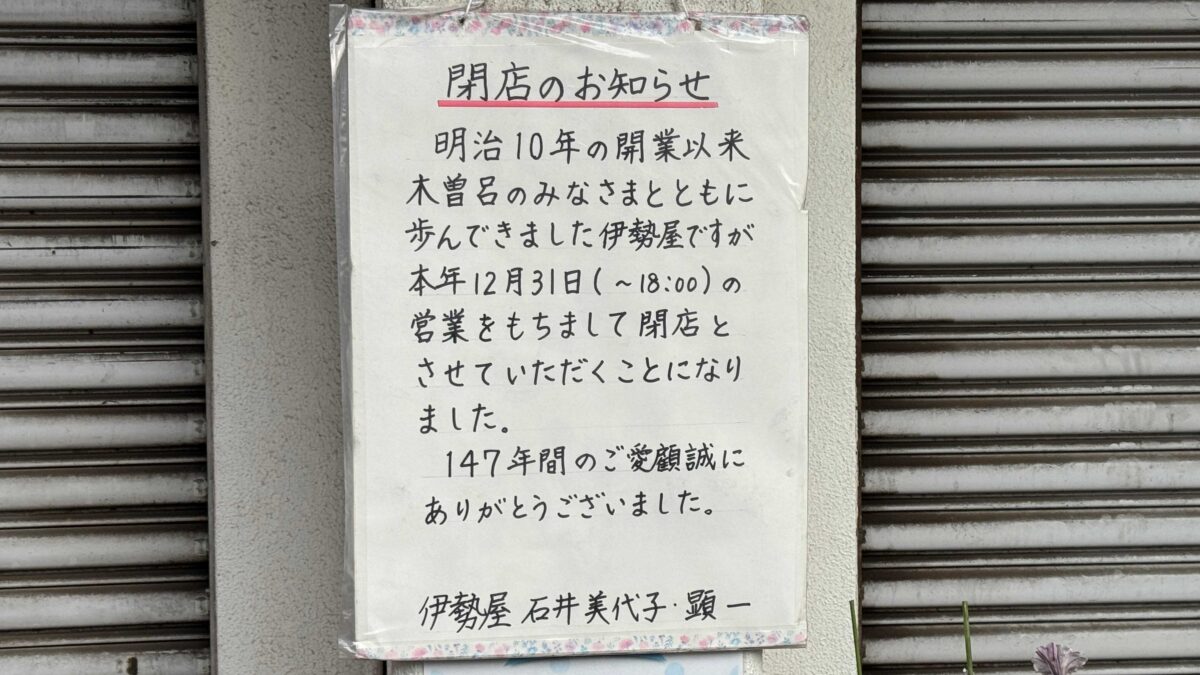 閉店のお知らせ
明治10年の開業以来
木曽呂のみなさまとともに
歩んできました伊勢屋ですが
本年12月31日(~18:00)の
営業をもちまして閉店と
させていただくことになり
ました。
147年間のご愛顧誠に
ありがとうございました。
伊勢屋 石井美代子・顕一